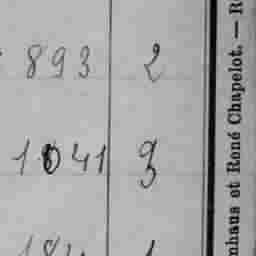 893 2
1041 3
mhaus et René Chapelot. — R